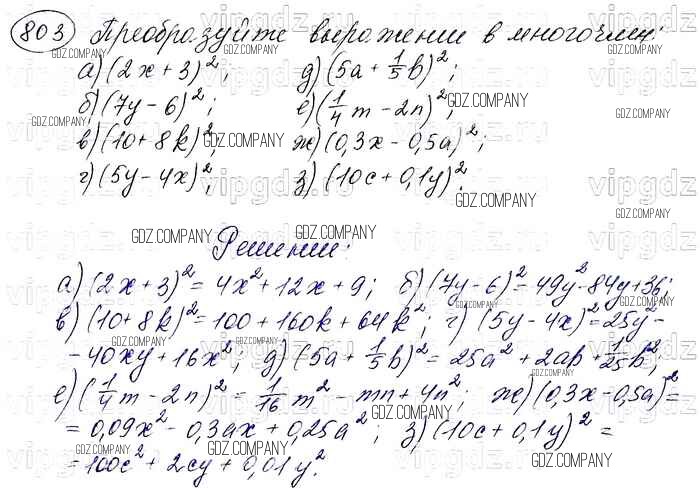 803 Преобразуйте выражение в многочлен:
а) (2x + 3)²; д) (5a + 1/5 b)²;
б) (7y - 6)²; е) (1/4 m - 2n)²;
в) (10 + 8k)²; ж) (0,3x - 0,5a)²;
г) (5y - 4x)²; з) (10c + 0,1y)².
Решение:
а) (2x + 3)² = 4x² + 12x + 9; б) (7y - 6)² = 49y² - 84y + 36;
в) (10 + 8k)² = 100 + 160k + 64k²; г) (5y - 4x)² = 25y² -
- 40xy + 16x²; д) (5a + 1/5 b)² = 25a² + 2ab + 1/25 b²;
е) (1/4 m - 2n)² = 1/16 m² - mn + 4n²; ж) (0,3x - 0,5a)² =
= 0,09x² - 0,3ax + 0,25a²; з) (10c + 0,1y)² =
= 100c² + 2cy + 0,01y².
GDZ.COMPANY
vipgdz.ru